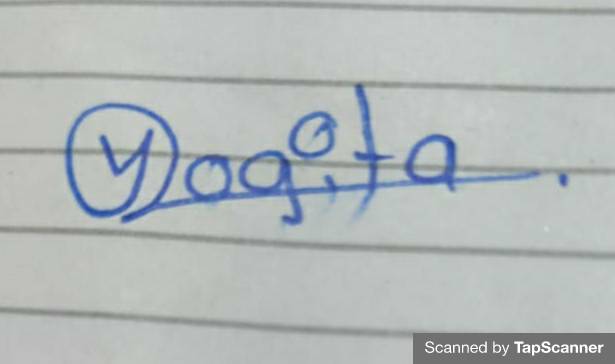 Yogita.
Scanned by TapScanner